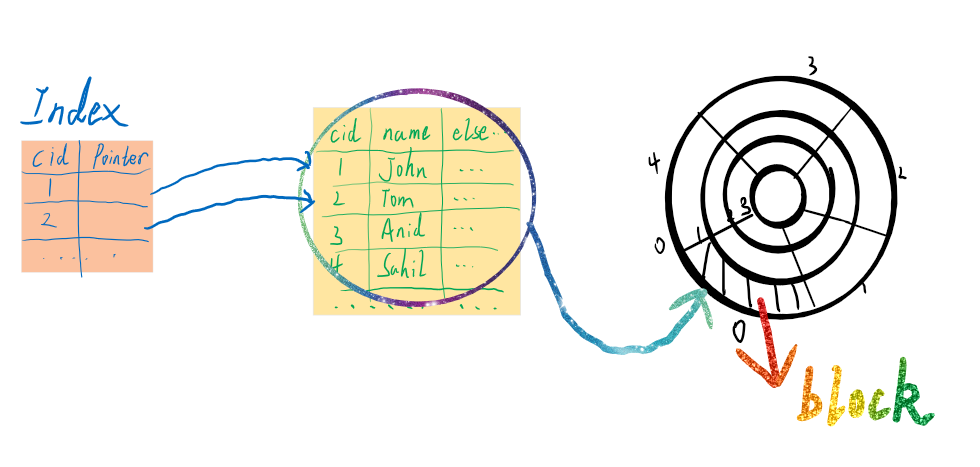 Index
cid Pointer
1
2
.....
cid name else..
1 John ...
2 Tom ...
3 Anid ...
4 Sahil ...
......
3
4
2
3
0
1
1
0
block